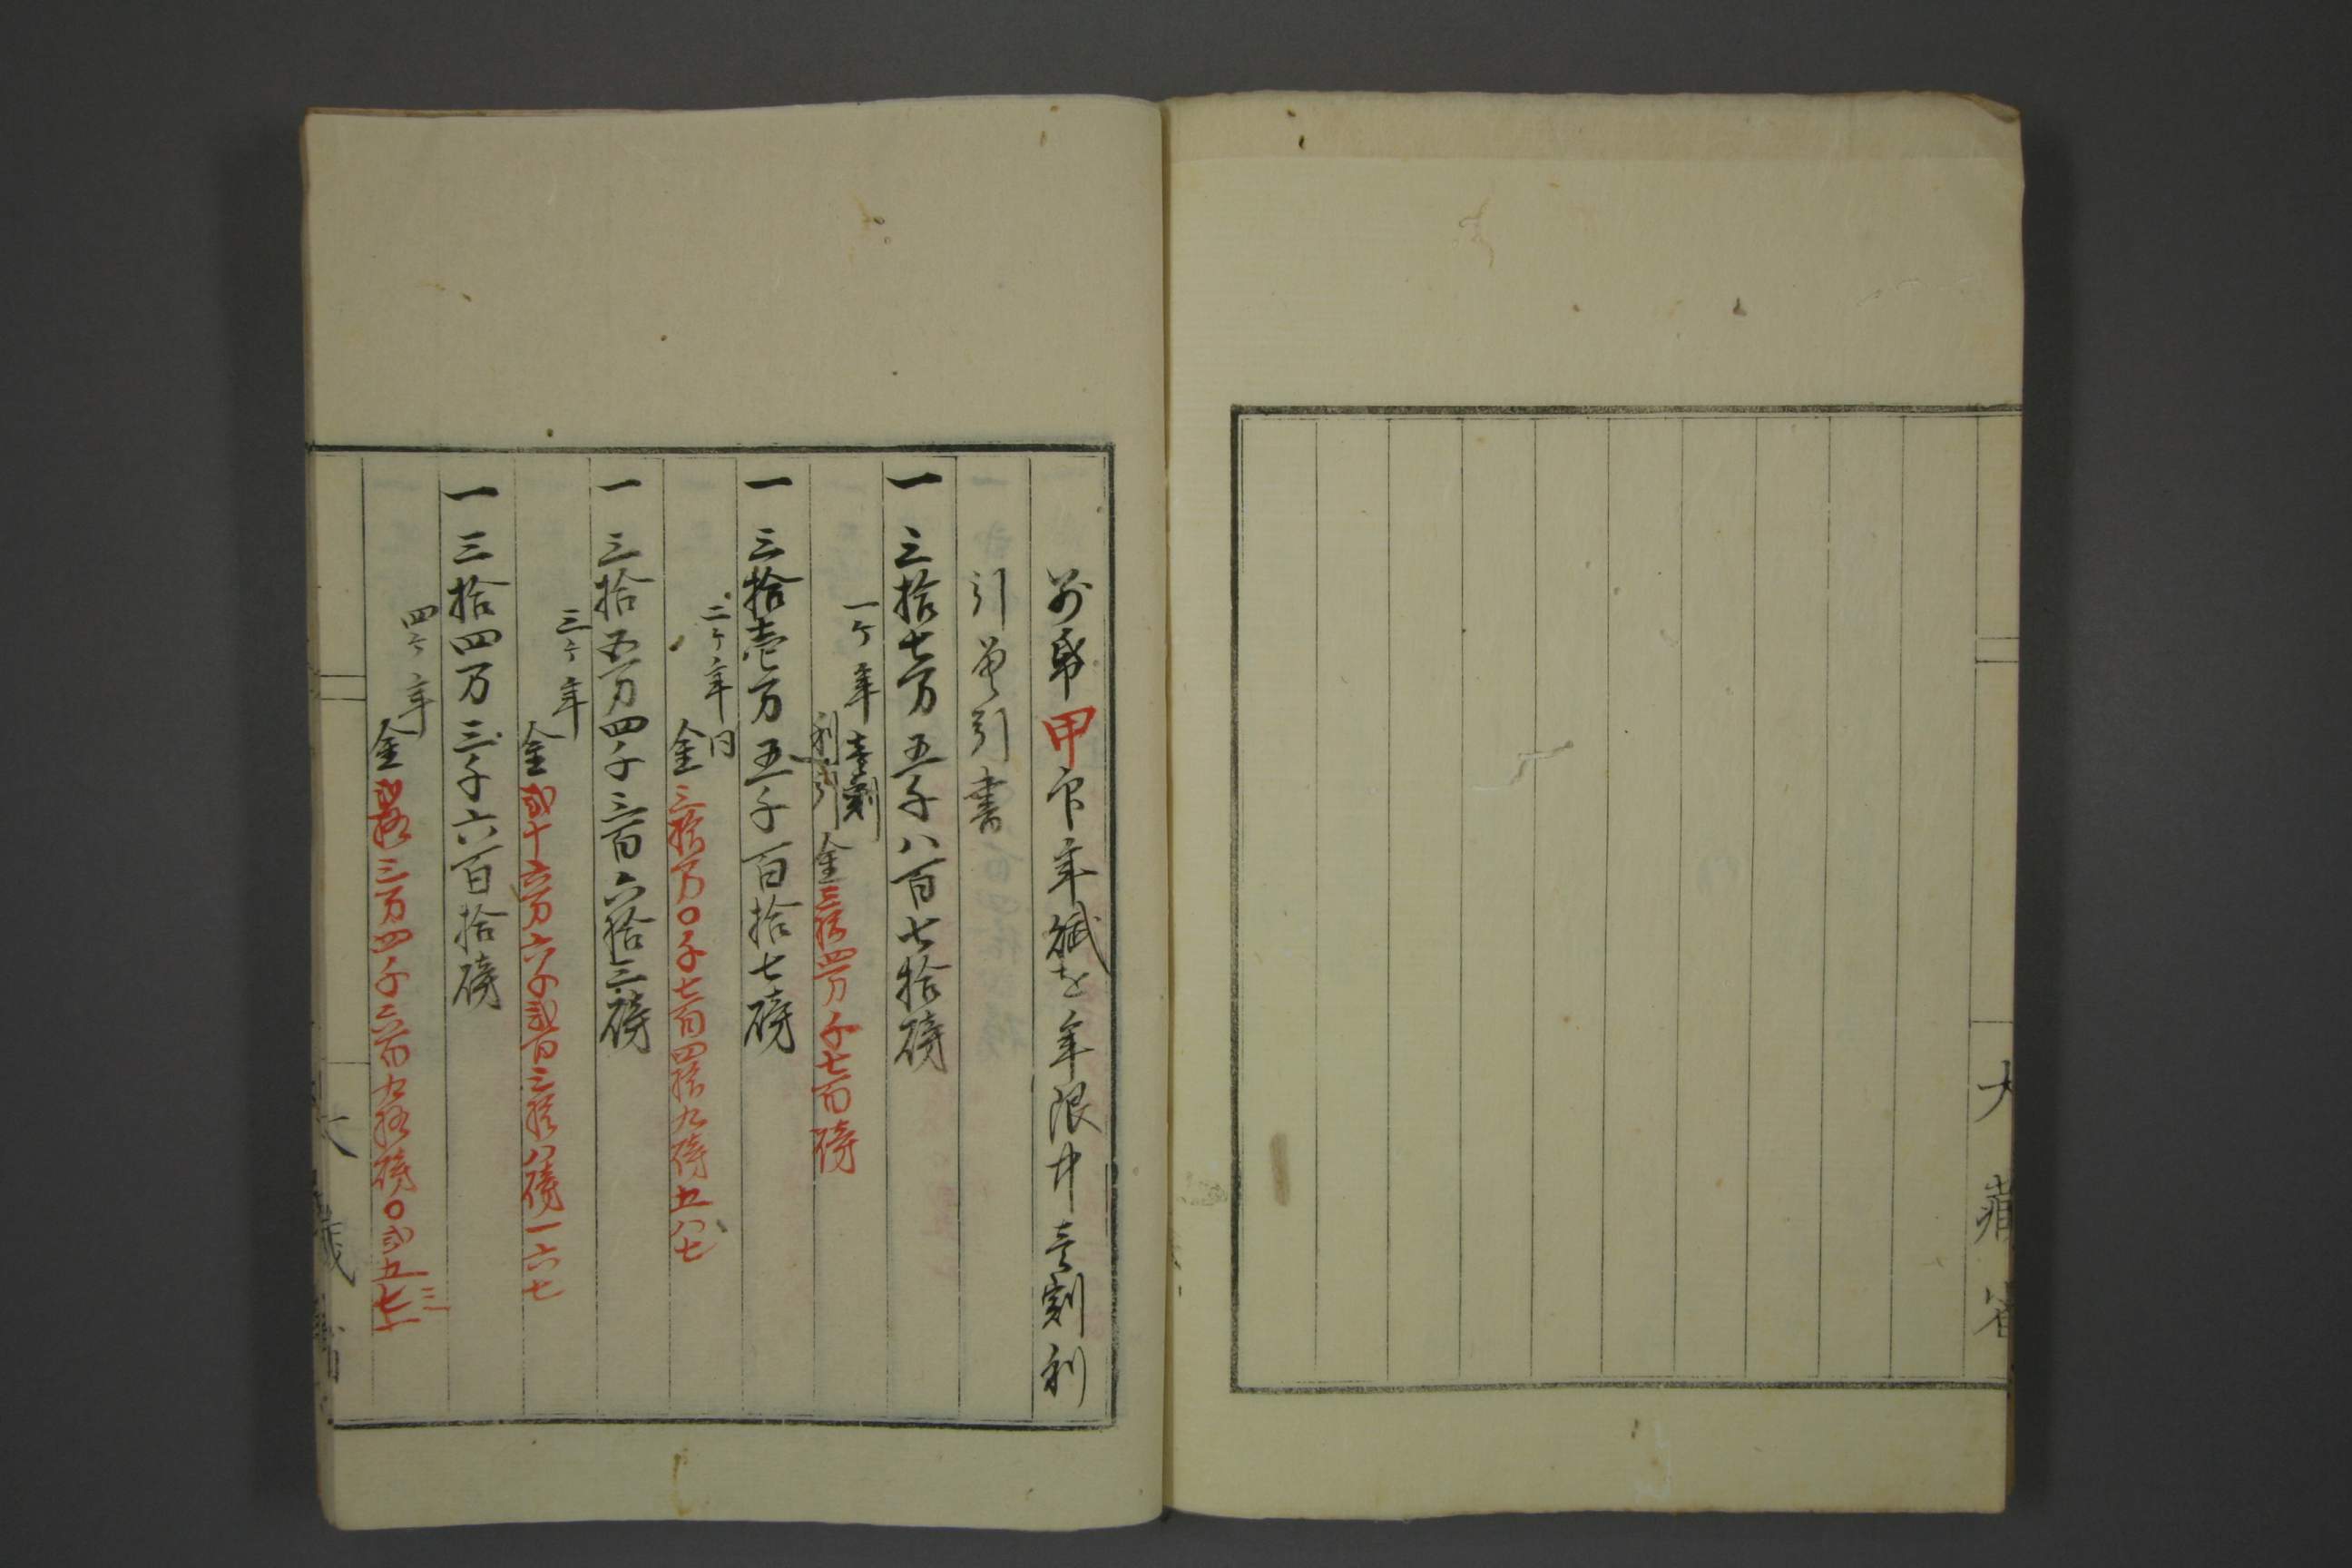 大藏省
前条甲印年賦を年限中壱割利
引算引書
一 三拾七万五千八百七拾磅
一ケ年 壱割利引 金三拾四万千七百磅
一 三拾壱万五千百拾七磅
二ケ年 同 金三拾万〇千七百四拾九磅五八七
一 三拾五万四千三百六拾三磅
三ケ年 金弐十六万六千弐百三拾八磅一六七
一 三拾四万三千六百拾磅
四ケ年 金弐拾三万四千六百九拾磅〇弐五七三
大藏省